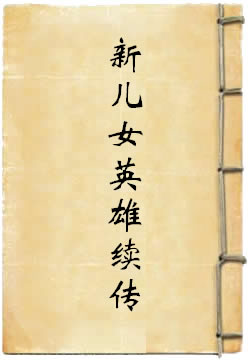 新儿女英雄续传